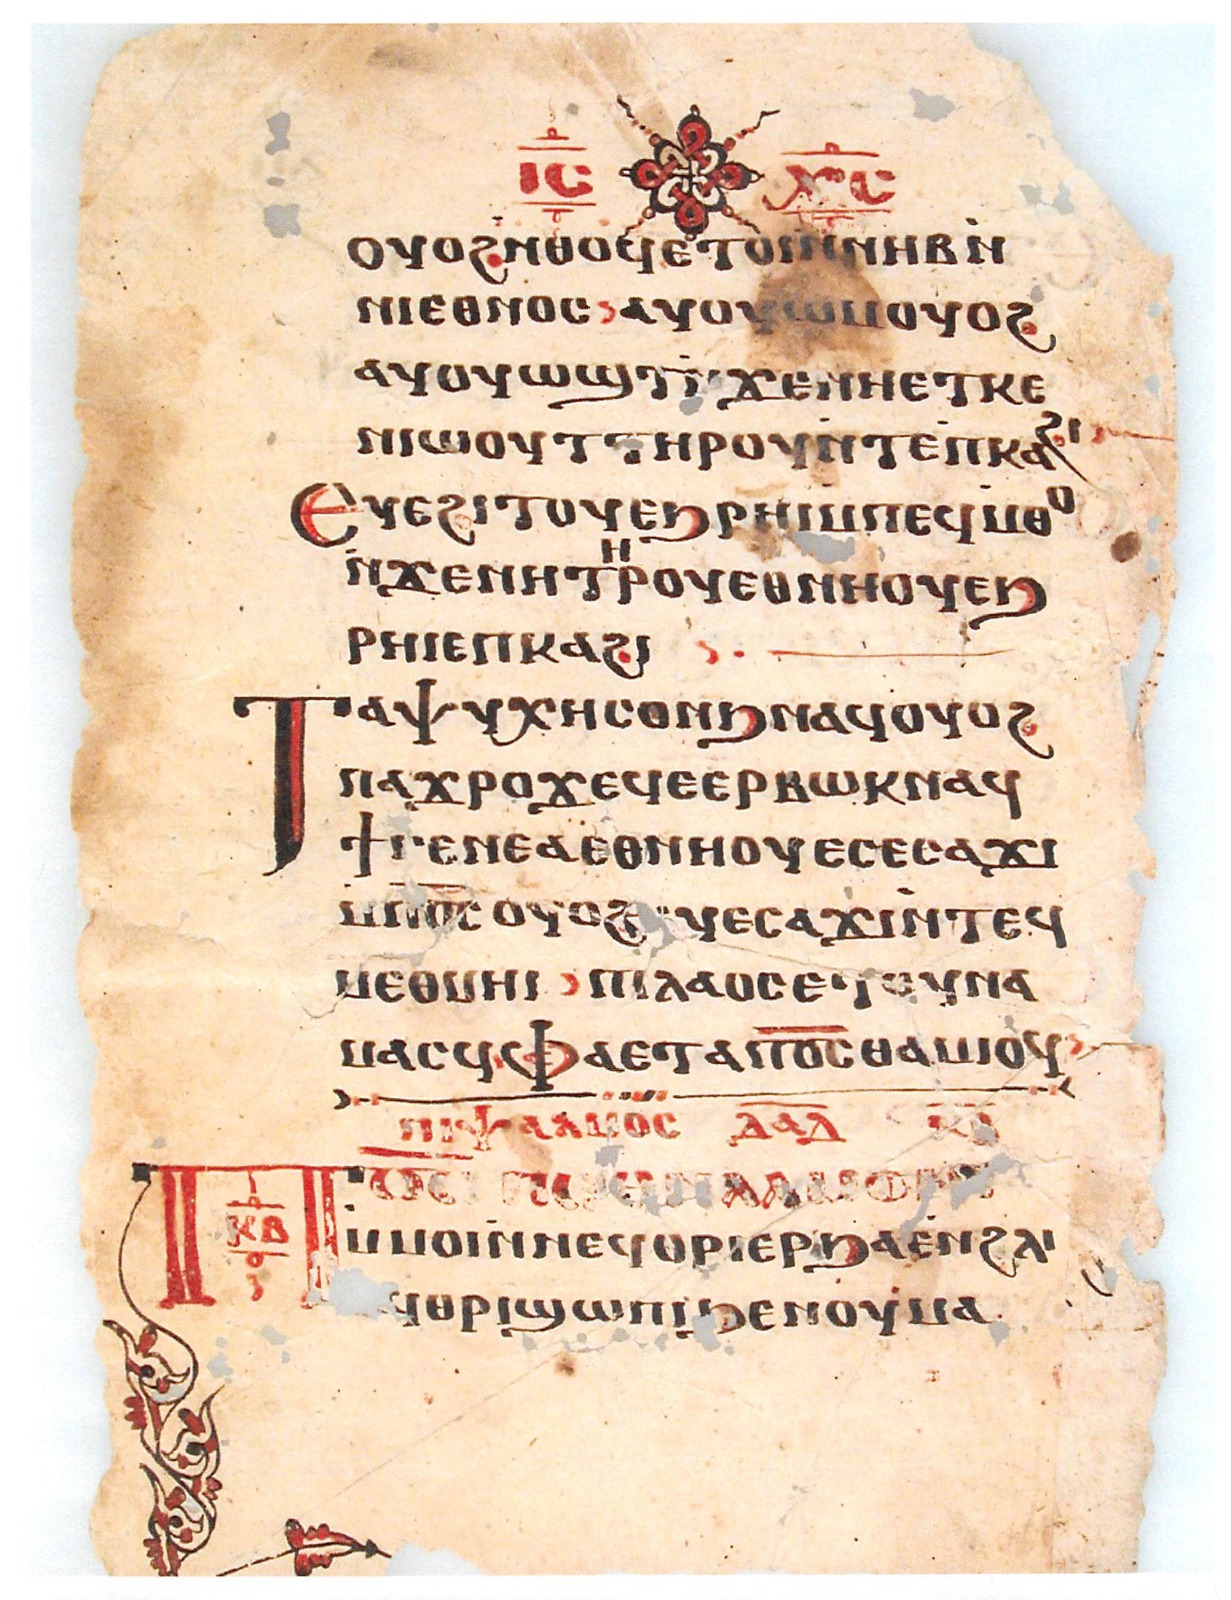 ⲒⲤ ⲬⲤ
ⲟⲩⲟϩⲛⲑⲟϥⲉⲧⲟⲓⲛ̀ⲛⲏⲃⲛ̀
ⲛⲓⲉⲑⲛⲟⲥ ⲁⲩⲟⲩⲱⲙⲟⲩⲟϩ
ⲁⲩⲟⲩⲱϣⲧⲛ̀ϫⲉⲛⲏⲉⲧⲕⲉ
ⲛⲓⲱⲟⲩⲧⲧⲏⲣⲟⲩⲛ̀ⲧⲉⲡⲕⲁϩⲓ
Ⲉⲩⲉϩⲓⲧⲟⲩⲉϧⲣⲏⲓⲙⲡⲉϥⲙ̀ⲑⲟ
ⲛ̀ϫⲉⲛⲏⲧⲏⲣⲟⲩⲉⲑⲛⲏⲟⲩⲉϧ
ⲣⲏⲓⲉⲡⲕⲁϩⲓ
Ⲧⲁⲯⲩⲭⲏⲥⲟⲛϧⲛⲁϥⲟⲩⲟϩ
ⲡⲁϫⲣⲟϫⲉϥⲉⲉⲣⲃⲱⲕⲛⲁϥ
ϯⲅⲉⲛⲉⲁⲉⲑⲛⲏⲟⲩⲉⲥⲉⲥⲁϫⲓ
ⲙⲡⲟ̅ⲥ̅ⲟⲩⲟϩⲉⲩⲉⲥⲁϫⲓⲛ̀ⲧⲉϥ
ⲙⲉⲑⲙⲏⲓ ⲡⲓⲗⲁⲟⲥⲉⲧⲟⲩⲛⲁ
ⲙⲁⲥϥ ⲫⲁⲉⲧⲁⲡⲟ̅ⲥ̅ⲑⲁⲙⲓⲟϥ
ⲡⲓⲯⲁⲗⲙⲟⲥ ⲇⲁⲇ
ⲕⲃ
Ⲡⲟ̅ⲥ̅ ⲡⲉⲑⲛⲁⲁⲙⲟⲛⲓ
ⲙ̀ⲙⲟⲓⲛ̀ⲛⲉϥⲑⲣⲓⲉⲣϧⲁⲉⲛϩⲗⲓ
ⲁϥⲑⲣⲓϣⲱⲡⲓϧⲉⲛⲟⲩⲙⲁ